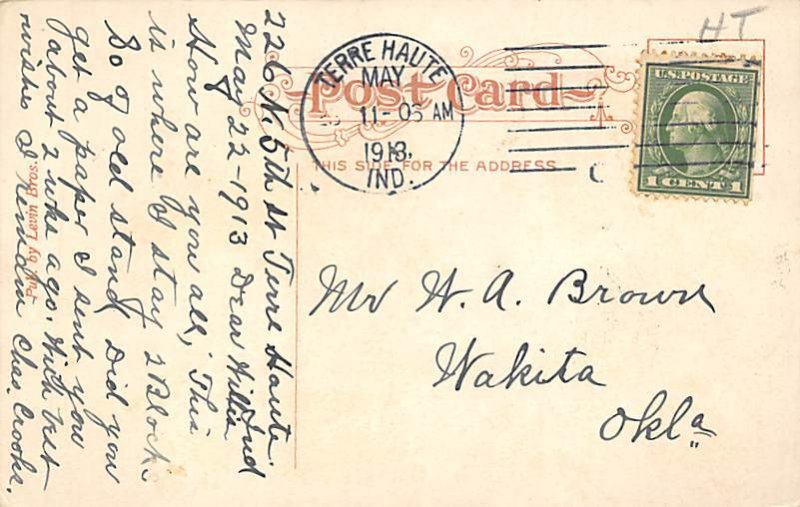 226 N. 5th St Terre Haute.
May 22-1913 Dear Willis Ind
How are you all, This
is where I stay 2 Blocks
So of old stand, Did you
get a paper I sent you
about 2 wks ago. With best
wishes I Remain Chas. Crooke.
Pub. by Levin Bros.
TERRE HAUTE
MAY
11-03 AM
1913.
IND.
Post Card
THIS SIDE FOR THE ADDRESS
HT
U.S. POSTAGE
1 CENT 1
Mr W. A. Brown
Wakita
Okla